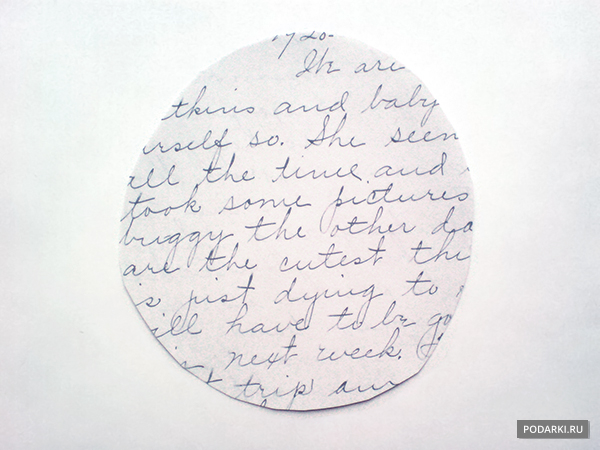 We are
and baby
urself so. She seem
all the time and
took some pictures
buggy the other da
are the cutest thi
is just dying to
ill have to be go
next week.
trip
PODARKI.RU